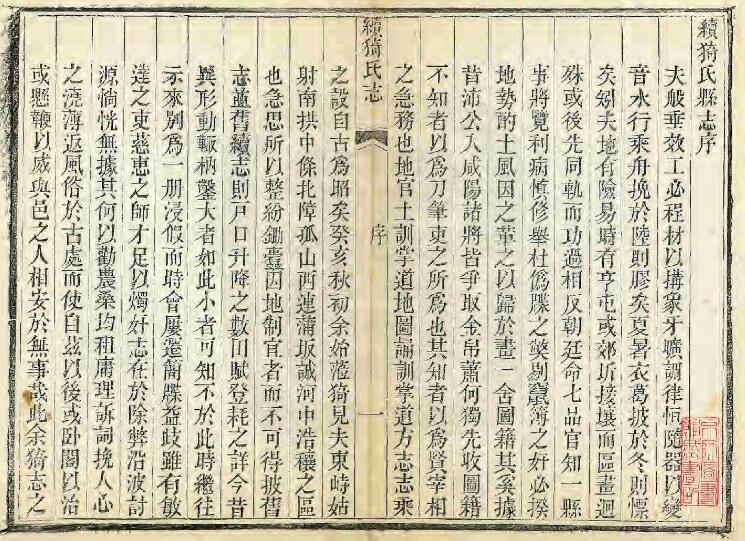 續猗氏縣志序
夫般垂效工必程材以搆象牙曠調律恒隨器以變
音水行乘舟挽於陸則膠矣夏暑衣葛披於冬則慓
矣矧夫地有險易時有亨屯或郊圻接壤而區畫迥
殊或後先同軌而功過相反朝廷命七品官知一縣
事將覽利病慎修舉杜僞牒之獘剔竄簿之奸必揆
地勢酌土風因之革之以歸於畫一舍圖籍其奚據
昔沛公入咸陽諸將皆爭取金帛蕭何獨先收圖籍
不知者以爲刀筆吏之所爲也其知者以爲賢宰相
之急務也地官土訓掌道地圖誦訓掌道方志志乘
續猗氏志
序
一
之設自古爲昭矣癸亥秋初余始蒞猗見夫東峙姑
射南拱中條北障孤山西連蒲坂誠河中浩穰之區
也急思所以整紛鋤蠹因地制宜者而不可得披舊
志並舊續志則戸口升降之數田賦登耗之詳今昔
異形動輒枘鑿大者如此小者可知不於此時繼往
示來别爲一册浸假而時會屢遷簡牒益歧雖有敏
達之吏慈惠之師才足以燭奸志在於除弊沿波討
源惝恍無據其何以勸農桑均租庸理訴詞挽人心
之澆薄返風俗於古處而使自茲以後或卧閣以治
或懸鞭以威與邑之人相安於無事哉此余猗志之